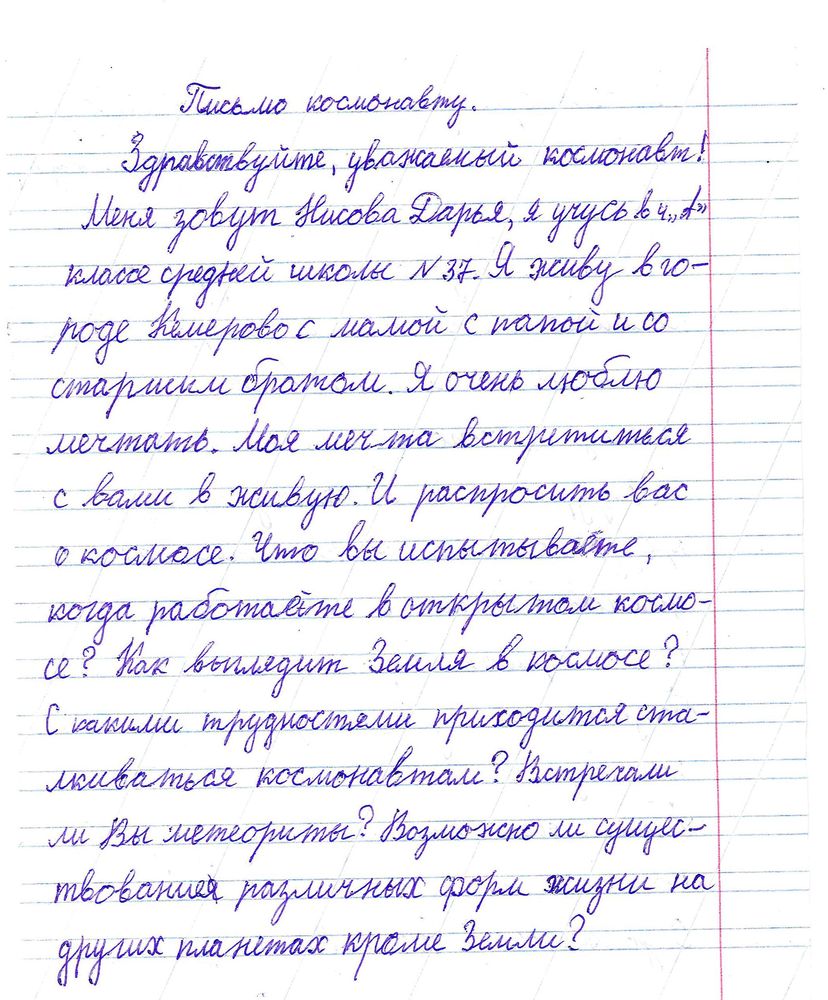 Письмо космонавту.
Здравствуйте, уважаемый космонавт!
Меня зовут Нисова Дарья, я учусь в 4 „А"
классе средней школы № 37. Я живу в го-
роде Кемерово с мамой с папой и со
старшим братом. Я очень люблю
мечтать. Моя мечта встретиться
с вами в живую. И распросить вас
о космосе. Что вы испытываете,
когда работаете в открытом космо-
се? Как выглядит Земля в космосе?
С какими трудностями приходится ста-
лкиваться космонавтам? Встречали
ли Вы метеориты? Возможно ли сущес-
твование различных форм жизни на
других планетах кроме Земли?